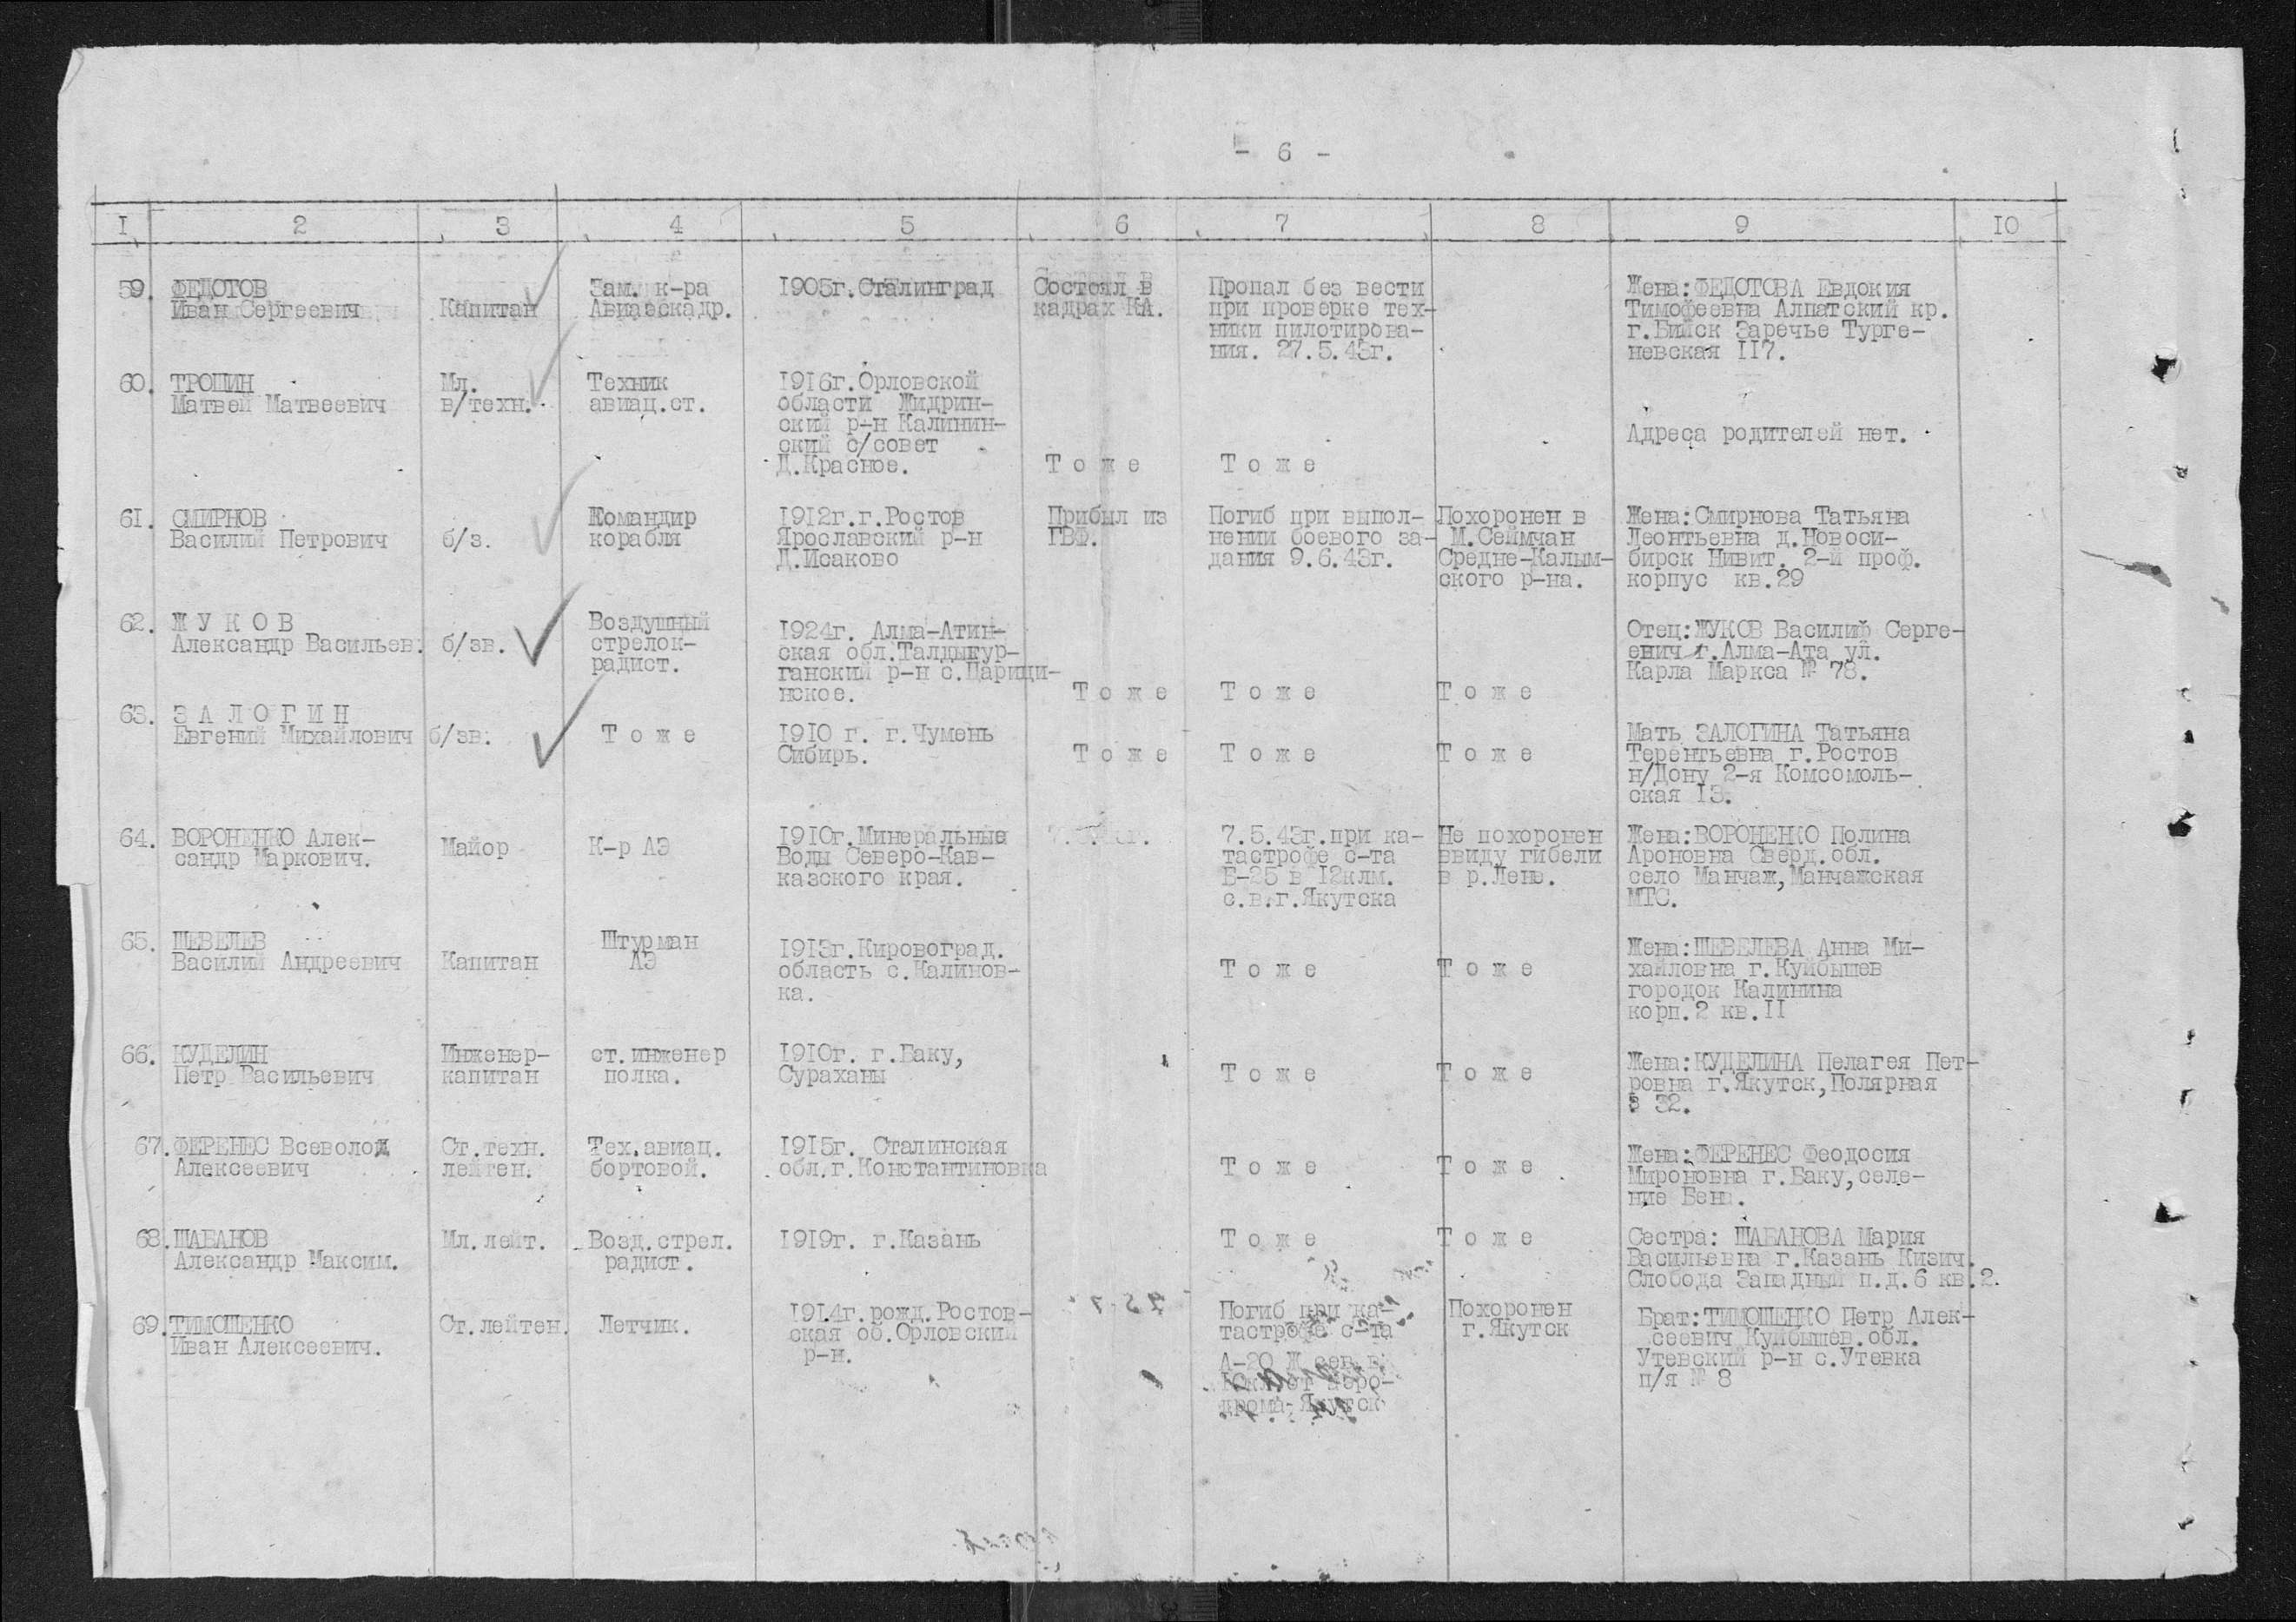 - 6 -
I 2 3 4 5 6 7 8 9 10
59. ФЕДОТОВ
Иван Сергеевич
Капитан
Зам. к-ра
Авиаэскадр.
1905г.Сталинград
Состоял в
кадрах КА.
Пропал без вести
при проверке тех-
ники пилотирова-
ния. 27.5.43г.
Жена:ФЕДОТОВА Евдокия
Тимофеевна Алтатский кр.
г.Бийск Заречье Турге-
невская II7.
60. ТРОШИН
Матвей Матвеевич
Мл.
в/техн.
Техник
авиац.ст.
1916г.Орловской
области Жидрин-
ский р-н Калинин-
ский с/совет
Д.Красное.
Т о ж е
Т о ж е
Адреса родителей нет.
61. СМИРНОВ
Василий Петрович
б/з.
Командир
корабля
1912г.г.Ростов
Ярославский р-н
Д.Исаково
Прибыл из
ГВФ.
Погиб при выпол-
нении боевого за-
дания 9.6.43г.
Похоронен в
М.Сеймчан
Средне-Калым-
ского р-на.
Жена:Смирнова Татьяна
Леонтьевна д.Новоси-
бирск Нивит. 2-й проф.
корпус кв.29
62. Ж У К О В
Александр Васильев.
б/зв.
Воздушный
стрелок-
радист.
1924г. Алма-Атин-
ская обл.Талдыкур-
ганский р-н с.Царици-
нское.
Т о ж е
Т о ж е
Т о ж е
Отец:ЖУКОВ Василий Серге-
евич г.Алма-Ата ул.
Карла Маркса № 78.
63. З А Л О Г И Н
Евгений Михайлович
б/зв.
Т о ж е
1910 г. г.Чумень
Сибирь.
Т о ж е
Т о ж е
Т о ж е
Мать ЗАЛОГИНА Татьяна
Терентьевна г.Ростов
н/Дону 2-я Комсомоль-
ская 13.
64. ВОРОНЕНКО Алек-
сандр Маркович.
Майор
К-р АЭ
1910г.Минеральные
Воды Северо-Кав-
казского края.
7.5.43г.при ка-
тастрофе с-та
Б-25 в 12клм.
с.в.г.Якутска
Не похоронен
ввиду гибели
в р.Лене.
Жена:ВОРОНЕНКО Полина
Ароновна Сверд.обл.
село Манчаж,Манчажская
МТС.
65. ШЕВЕЛЕВ
Василий Андреевич
Капитан
Штурман
АЭ
1913г.Кировоград.
область с.Калинов-
ка.
Т о ж е
Т о ж е
Жена:ШЕВЕЛЕВА Анна Ми-
хайловна г.Куйбышев
городок Калинина
корп.2 кв.II
66. КУДЕЛИН
Петр Васильевич
Инженер-
капитан
ст.инженер
полка.
1910г. г.Баку,
Сураханы
Т о ж е
Т о ж е
Жена:КУДЕЛИНА Пелагея Пет-
ровна г.Якутск,Полярная
32.
67. ФЕРЕНЕС Всеволод
Алексеевич
Ст.техн.
лейтен.
Тех.авиац.
бортовой.
1915г. Сталинская
обл.г.Константиновка
Т о ж е
Т о ж е
Жена:ФЕРЕНЕС Феодосия
Мироновна г.Баку,селе-
ние
68. ШАБАНОВ
Александр Максим.
Мл.лейт.
Возд.стрел.
радист.
1919г. г.Казань
Т о ж е
Т о ж е
Сестра: ШАБАНОВА Мария
Васильевна г.Казань Кизич.
Слобода Западный п.д.6 кв.2.
69. ТИМОШЕНКО
Иван Алексеевич.
Ст.лейтен.
Летчик.
1914г.рожд.Ростов-
ская об.Орловский
р-н.
Погиб при ка-
тастрофе с-та
А-20 Ж сев.в.
10клм.от аэро-
дрома Якутск
Похоронен
г.Якутск
Брат:ТИМОШЕНКО Петр Алек-
сеевич Куйбышев.обл.
Утевский р-н с.Утевка
п/я № 8